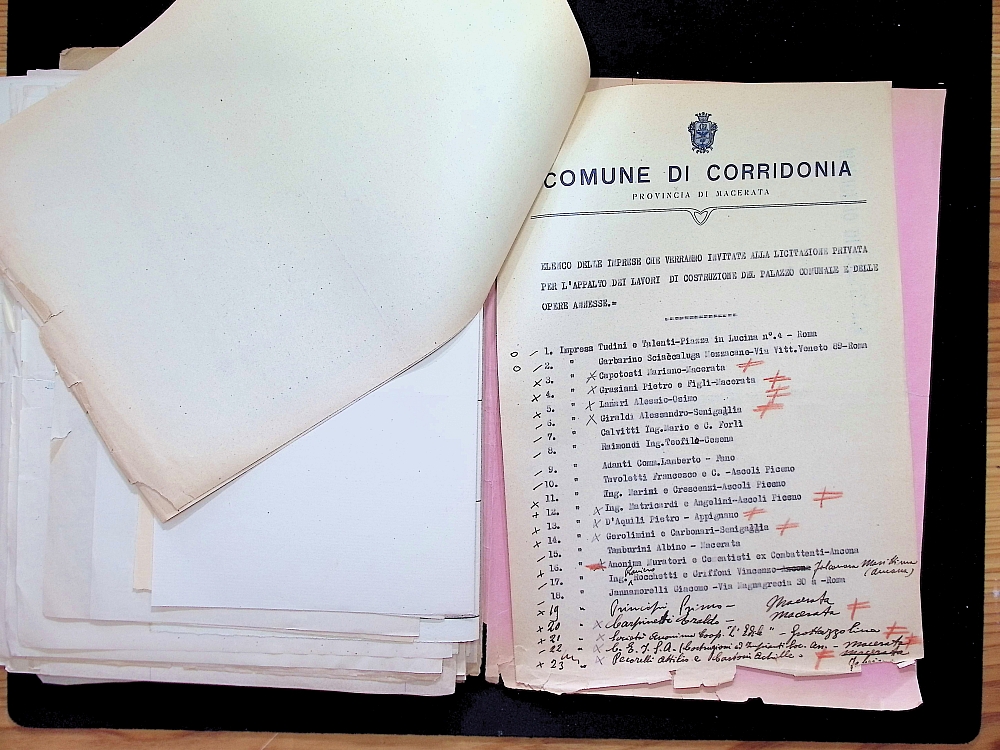 COMUNE DI CORRIDONIA
PROVINCIA DI MACERATA
ELENCO DELLE IMPRESE CHE VERRANNO INVITATE ALLA LICITAZIONE PRIVATA
PER L'APPALTO DEI LAVORI DI COSTRUZIONE DEL PALAZZO COMUNALE E DELLE
OPERE ANNESSE.=
1. Impresa Tudini e Talenti-Piazza in Lucina n°.4 - Roma
2. " Garbarino Sciaccaluga Mezzacane-Via Vitt.Veneto 89-Roma
3. " Capotosti Mariano-Macerata
4. " Graziani Pietro e Figli-Macerata
5. " Lanari Alessio-Osimo
6. " Giraldi Alessandro-Senigallia
7. " Calvitti Ing.Mario e C. Forlì
8. " Raimondi Ing.Teofilo-Cesena
9. " Adanti Comm.Lamberto - Fano
10. " Tavoletti Francesco e C. -Ascoli Piceno
11. " Ing. Marini e Crescenzi-Ascoli Piceno
12. " Ing. Matricardi e Angelini-Ascoli Piceno
13. " D'Aquili Pietro - Appignano
14. " Gerolimini e Carbonari-Senigallia
15. " Tamburini Albino - Macerata
16. " Anonima Muratori e Cementisti ex Combattenti-Ancona
17. " Ing. Rocchetti e Griffoni Vincenzo-Ancona Falconara Marittima
(Ancona)
18. " Jannamorelli Giacomo -Via Magnagrecia 30 a -Roma
19 " Principi Primo - Macerata
20 " Carpinetti Eraldo - Macerata
21 " Società Anonima Coop. "L'Edile" - Grottazzolina
22 " C.E.I.S.A. (Costruzioni ed Impianti Soc. An. - Macerata
23 " Pecorelli Attilio e Bastoni Achille - Macerata